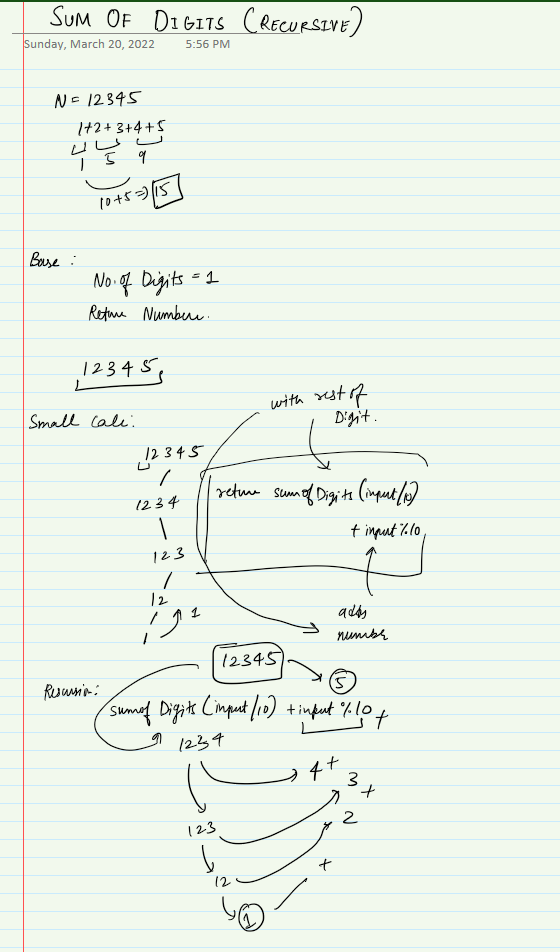 SUM OF DIGITS (RECURSIVE)
Sunday, March 20, 2022 5:56 PM
N = 12345
1+2+3+4+5
1 5 9
10+5 => 15
Base :
No. of Digits = 1
Return Number.
12345
Small Calc:
with rest of
Digit.
12345
1234
return sumofDigits(input/10)
+ input%10
123
12
1
adds
number
1
12345
5
Recursion:
sumof Digits (input/10) + input %10 +
1234
4 +
3 +
123
2
12
+
1